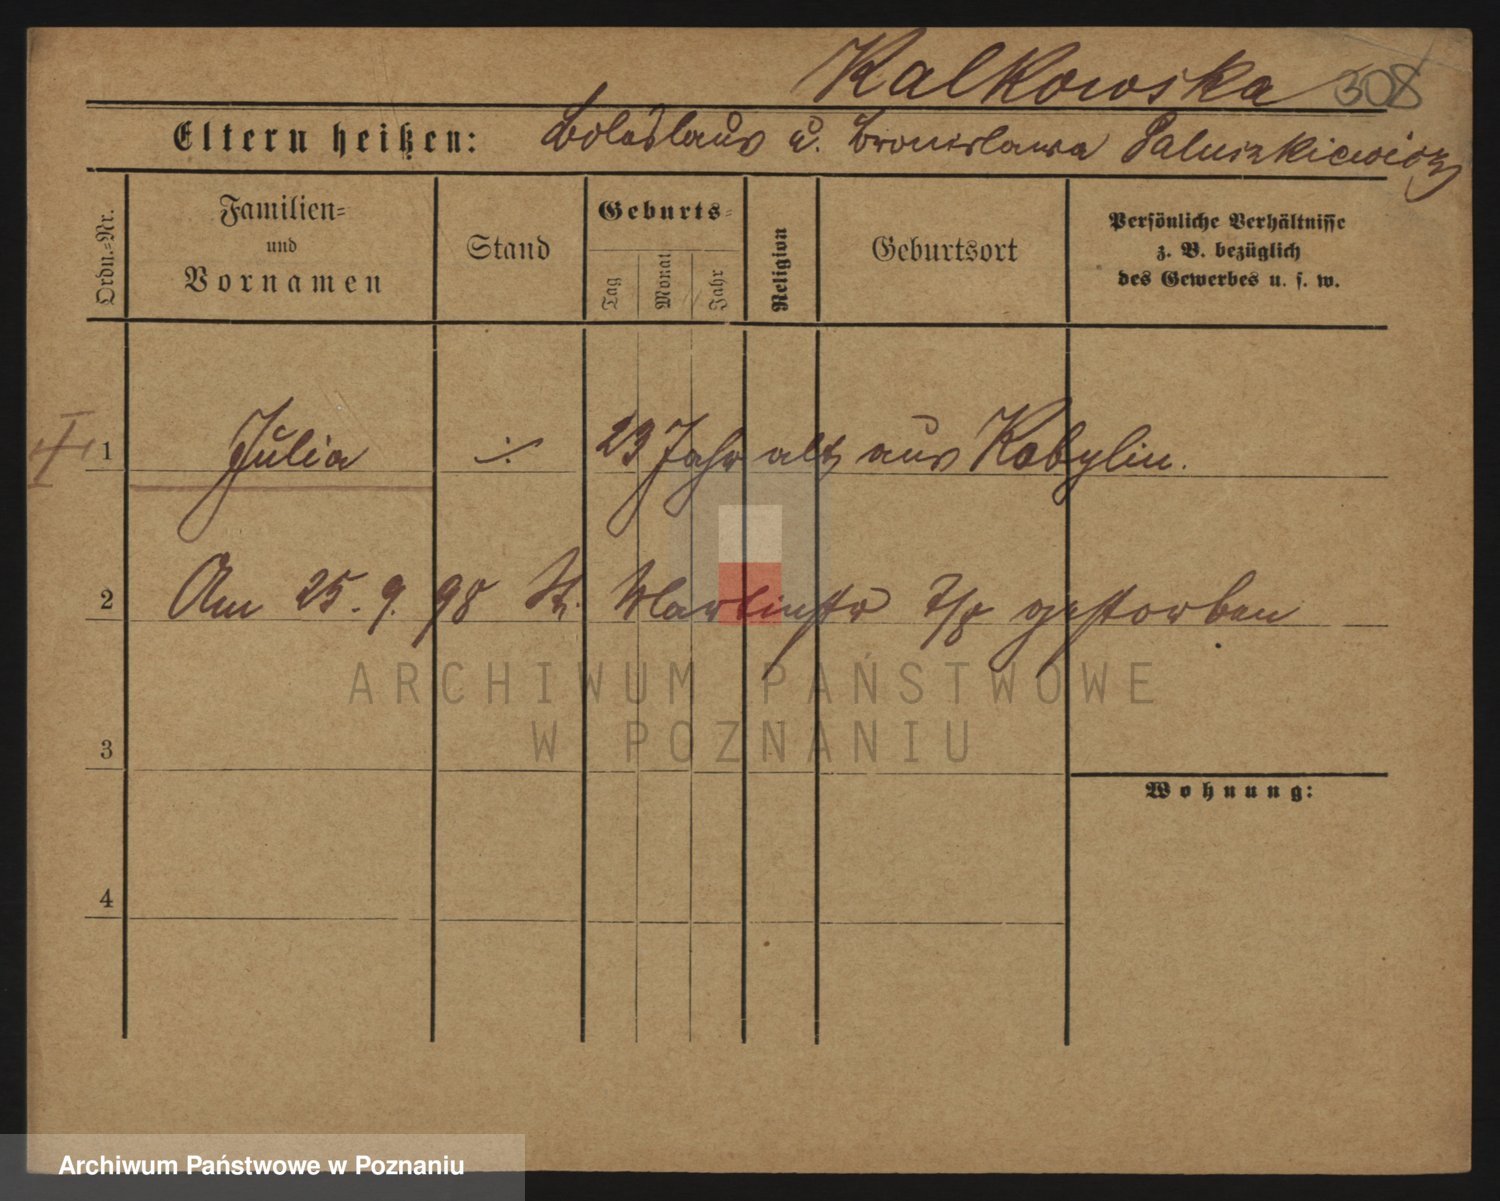 Kalkowska 308
Eltern heißen: Boleslaus u. Bronislawa Paluszkiewicz
Ordn.-Nr.
Familien-
und
Vornamen
Stand
Geburts-
Tag
Monat
Jahr
Religion
Geburtsort
Persönliche Verhältnisse
z. B. bezüglich
des Gewerbes u. s. w.
1 Julia ÷ 23 Jahr alt, aus Kobylin.
2 Am 25. 9. 98 St. Martinstr 7/8 gestorben
ARCHIWUM PAŃSTWOWE
W POZNANIU
3
Wohnung:
4
Archiwum Państwowe w Poznaniu